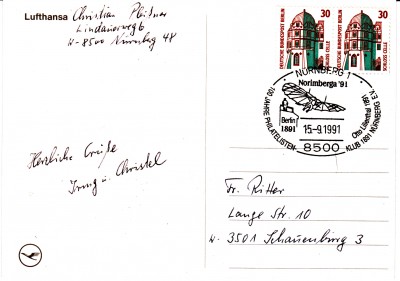 Lufthansa
Christian
W-8500 Nürnberg 48
Herzliche Grüße
Irmg u. Christel
30
30
DEUTSCHE BUNDESPOST BERLIN
SCHLOSS CELLE
DEUTSCHE BUNDESPOST BERLIN
SCHLOSS CELLE
NÜRNBERG 1
Norimberga '91
100 JAHRE PHILATELISTEN-KLUB 1891 NÜRNBERG E.V.
Otto Lilienthal 1991
Berlin
1891
15.-9.1991
8500
Fr. Ritter
Lange Str. 10
W- 3501 Schauenburg 3